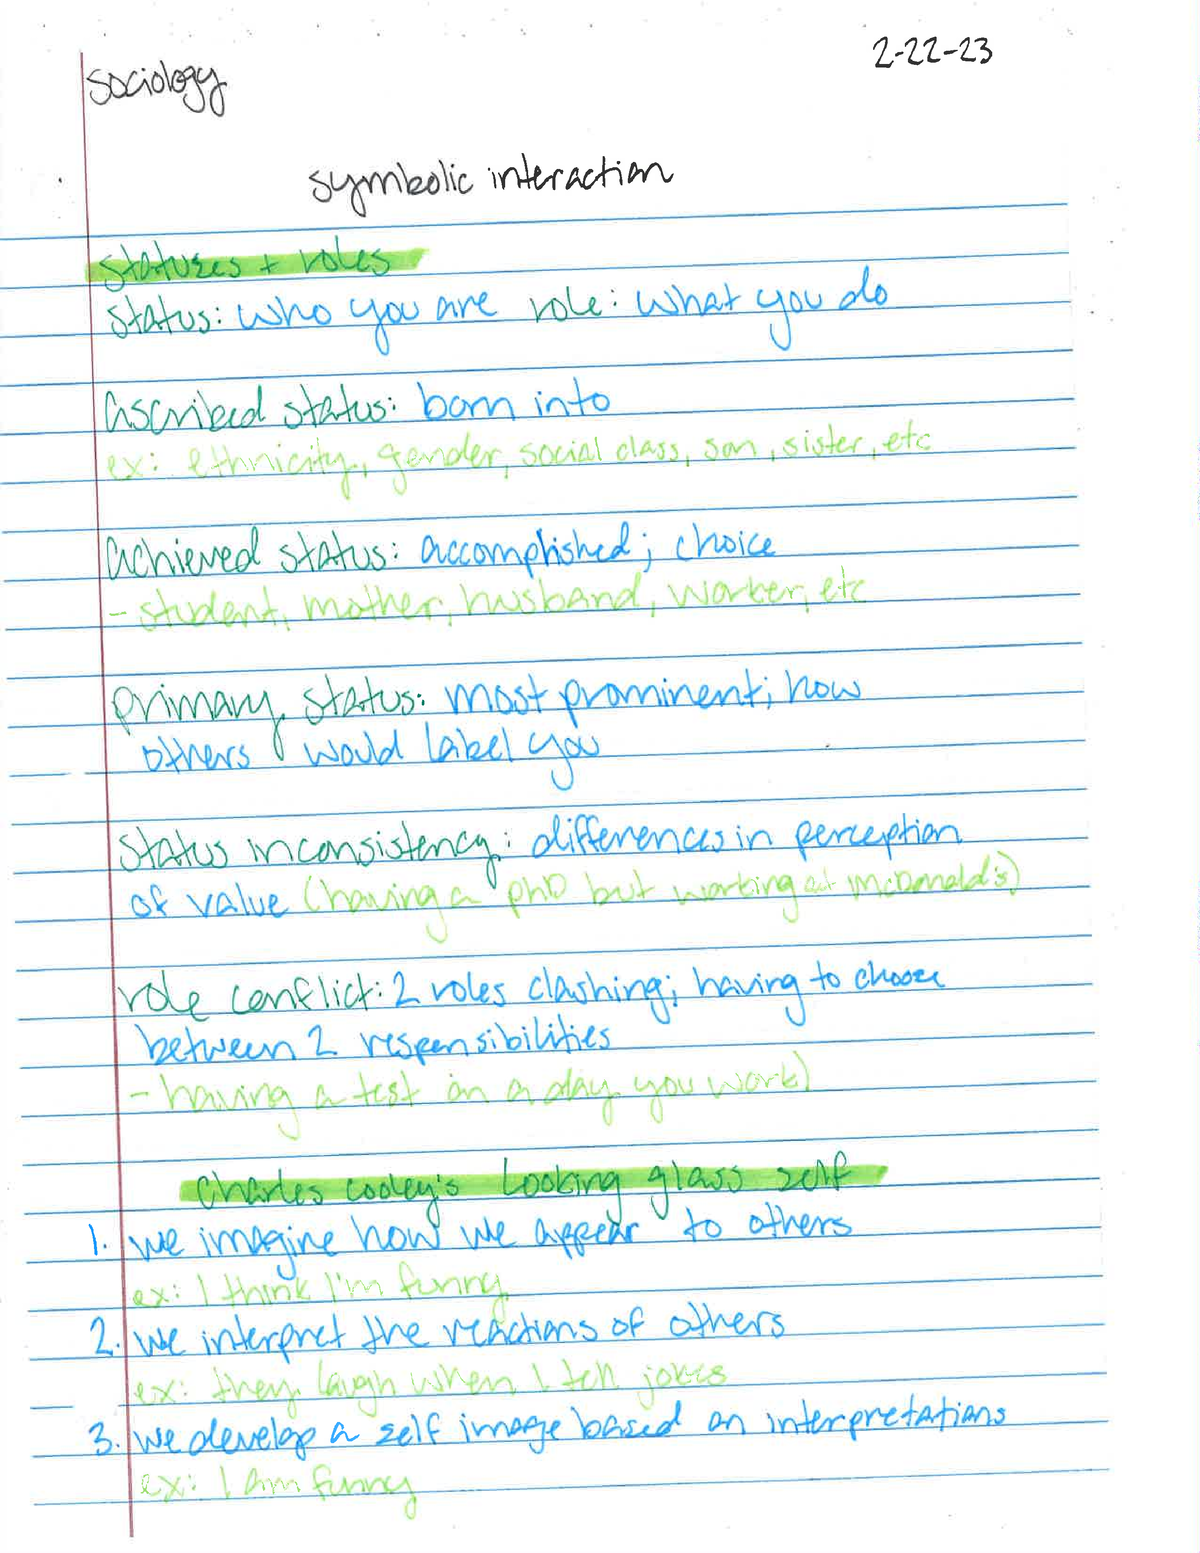 2-22-23
sociology
symbolic interaction
statuses + roles
status: who you are role: what you do
ascribed status: born into
ex: ethnicity, gender, social class, son, sister, etc
achieved status: accomplished; choice
- student, mother, husband, worker, etc
primary status: most prominent; how
others would label you
status inconsistency: differences in perception
of value (having a phD but working at mcDonald's)
role conflict: 2 roles clashing; having to choose
between 2 responsibilities
- having a test on a day you work)
Charles cooley's Looking glass self
1. we imagine how we appear to others
ex: I think I'm funny
2. we interpret the reactions of others
ex: they laugh when I tell jokes
3. we develop a self image based on interpretations
ex: I am funny